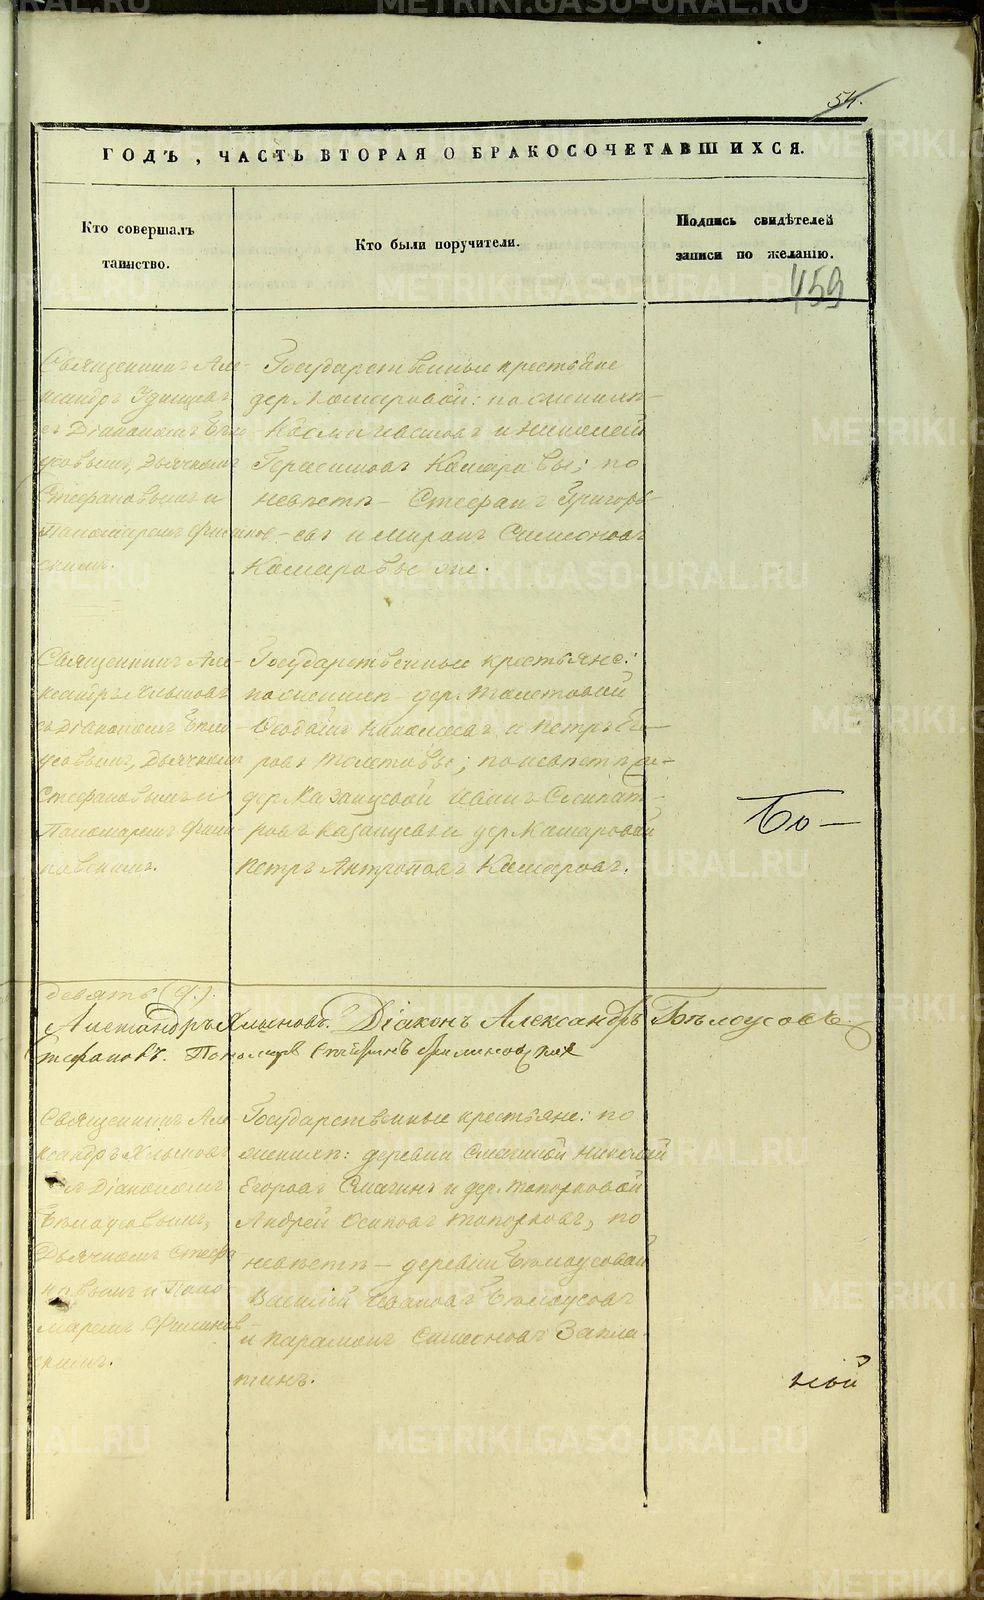 54.
ГОДЪ, ЧАСТЬ ВТОРАЯ О БРАКОСОЧЕТАВШИХСЯ.
Кто совершалъ таинство.
Кто были поручители.
Подпись свидѣтелей записи по желанію.
459
Священникъ Але-
ксандръ
съ Діакономъ Бѣло-
усовымъ, Дьячкомъ
Стефановымъ и
Пономаремъ Филинов-
скимъ.
Государственные крестьяне
дер. Комаровой: по женихѣ-
и Николай
Герасимовъ Комаровы; по
невѣстѣ - Стефанъ Григорь-
евъ и Миронъ Симеоновъ
Комаровы же.
Священникъ Але-
ксандръ Хлыновъ
съ Діакономъ Бѣло-
усовымъ, Дьячкомъ
Стефановымъ и
Пономаремъ Фили-
новскимъ.
Государственные крестьяне:
по женихѣ - дер.
и Петръ Его-
ровъ по невѣстѣ
дер. Казанцевой Иванъ Сосипат-
ровъ Казанцевъ и дер. Комаровой
Петръ Антроповъ Комаровъ.
Бо-
девять (9.).
Александръ Хлыновъ. Діаконъ Александръ Бѣлоусовъ.
Стефановъ. Пономарь
Священникъ Але-
ксандръ Хлыновъ
съ Діакономъ
Бѣлоусовымъ,
Дьячкомъ Стефа-
новымъ и Поно-
маремъ Филинов-
скимъ.
Государственные крестьяне: по
женихѣ: деревни Смагиной Николай
Егоровъ Смагинъ и дер. Топорковой
Андрей Осиповъ Топорковъ, по
невѣстѣ - деревни Бѣлоусовой
Василій Ивановъ Бѣлоусовъ
и Парамонъ Симеоновъ Запла-
тинъ.
ной
METRIKI.GASO-URAL.RU